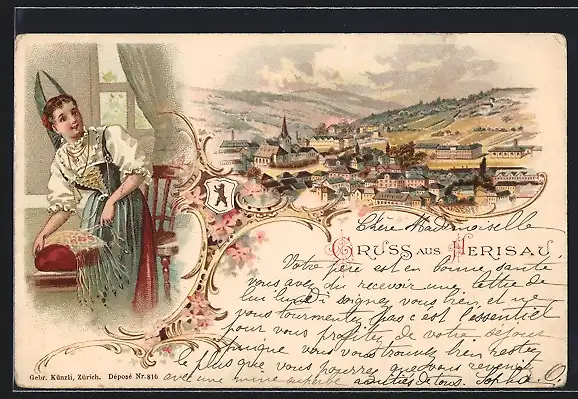 Chère Mademoiselle
GRUSS AUS HERISAU
Votre père est en bonne santé
vous avez du recevoir une lettre de
lui lundi soignez vous bien et ne
vous tourmentez pas c'est l'essentiel
pour vous profitez de votre séjour
puisque vous vous trouvez bien restez
le plus que vous pourrez que vous revenez
avec une mine superbe amitiés de tous. Sophie
Gebr. Künzli, Zürich. Déposé Nr. 816